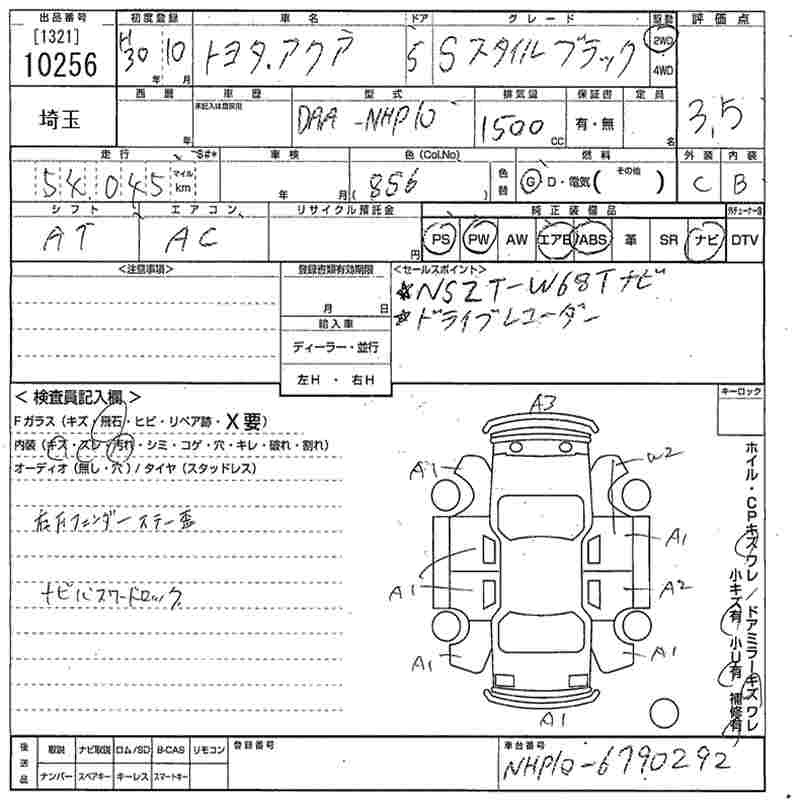 出品番号 初度登録 車名 ドア グレード 駆動 評価点
[1321]
10256
H30 年 10 月 トヨタ.アクア 5 Sスタイルブラック 2WD 4WD
3.5
埼玉
西暦 車歴 型式 排気量 保証書 定員
未記入は自家用
年 DAA-NHP10 1500 CC 有・無 名
走行 S#* 車検 色(Col.No) 色替 燃料 外装 内装
54,045 マイル km 年 月 ( 856 ) G・D・電気( その他 ) C B
シフト エアコン リサイクル預託金 純正装備品
AT AC 円 PS PW AW エアB ABS 革 SR ナビ DTV
<注意事項> 登録書類有効期限 <セールスポイント>
月 日
☆NSZT-W68Tナビ
☆ドライブレコーダー
輸入車
ディーラー・並行
左H ・ 右H
<検査員記入欄> キーロック
Fガラス(キズ・飛石・ヒビ・リペア跡・X要)
内装(キズ・スレ・汚れ・シミ・コゲ・穴・キレ・破れ・割れ)
オーディオ(無し・穴)/タイヤ(スタッドレス)
右Fフェンダーステー歪
ナビパスワードロック
A3
A1 W2
A1
A1 A2
A1 A1
A1
ホイル・CPキズワレ/ドアミラーキズワレ
小キズ有 小U有 補修有
後送品 取説 ナビ取説 ロム/SD B-CAS リモコン 登録番号 車台番号
ナンバー スペアキー キーレス スマートキー
NHP10-6790292